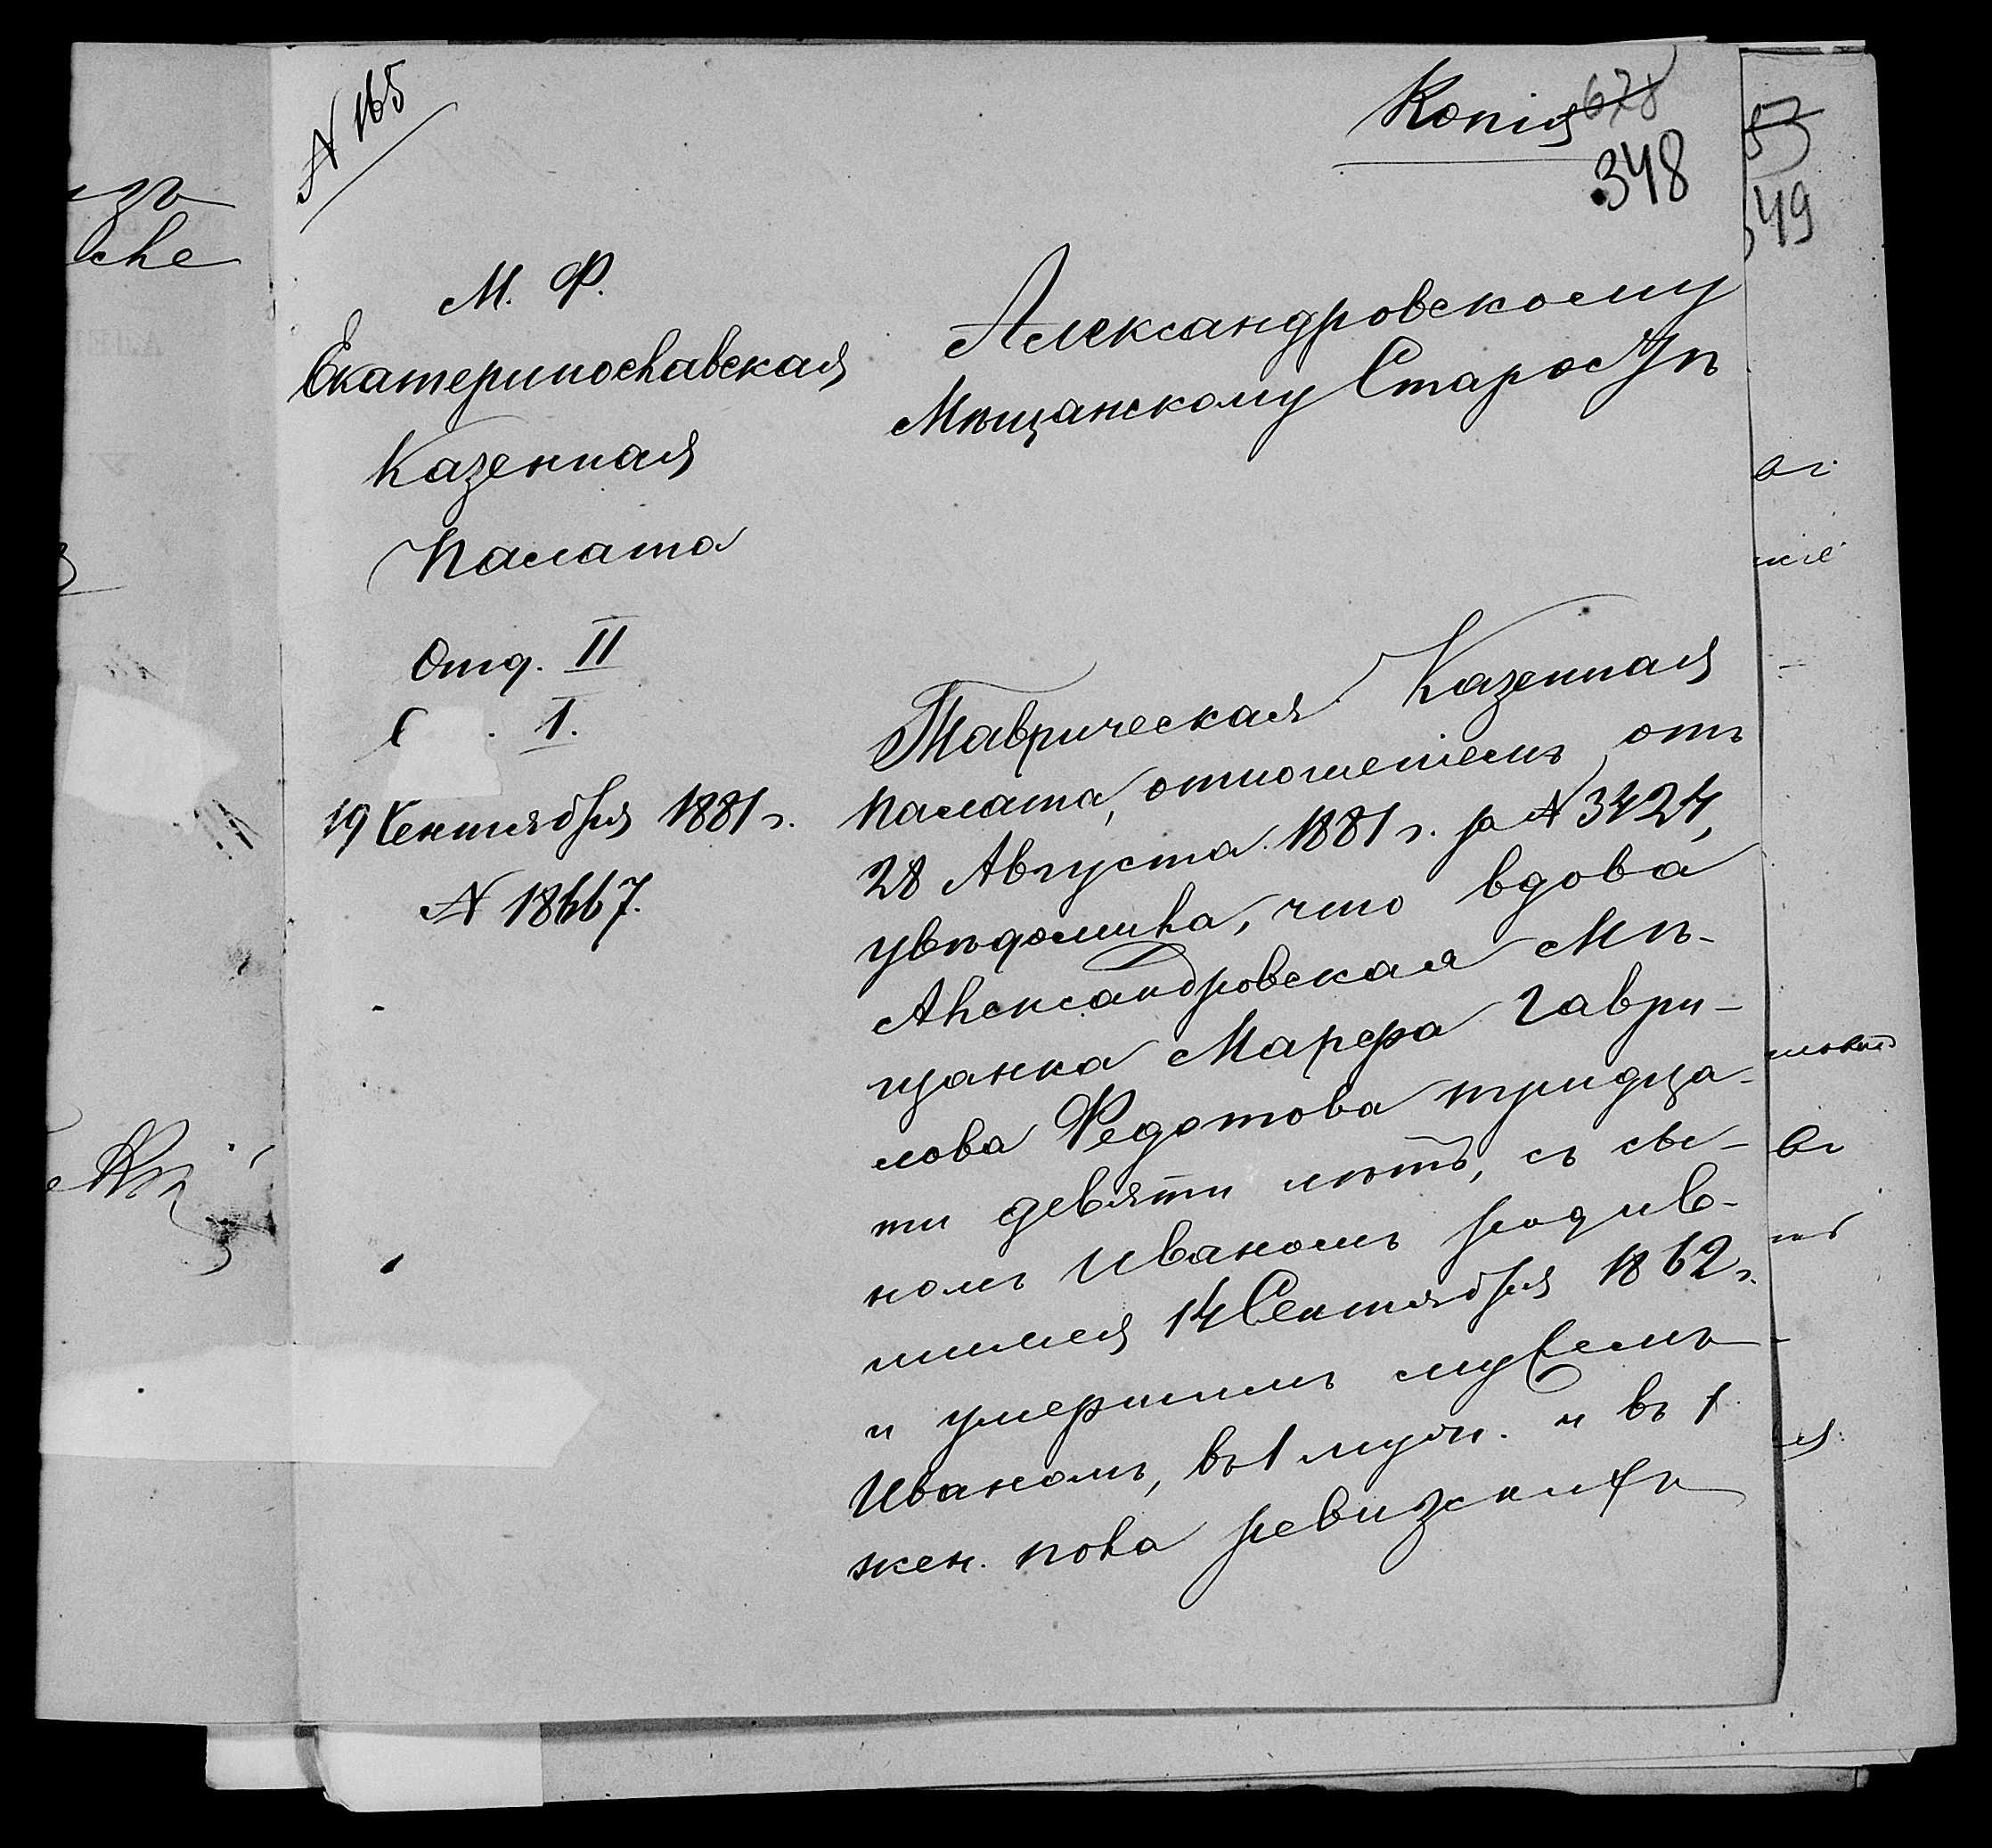 № 165
Копія
678
348
М. Ф.
Екатеринославская
Казенная
Палата
Отд. II
1.
19 Сентября 1881 г.
№ 18667.
Александровскому
Мѣщанскому Старостѣ
Таврическая Казенная
Палата, отношеніемъ отъ
28 Августа 1881 г. за № 3424,
увѣдомила, что вдова
Александровская Мѣ-
щанка Марфа Гаври-
лова Федотова тридца-
ти девяти лѣтъ, съ сы-
номъ Иваномъ родив-
шимся 14 Сентября 1862 г.
и умершимъ мужемъ
Иваномъ, въ 1 муж. и въ 1
жен. пола ревизскихъ
49